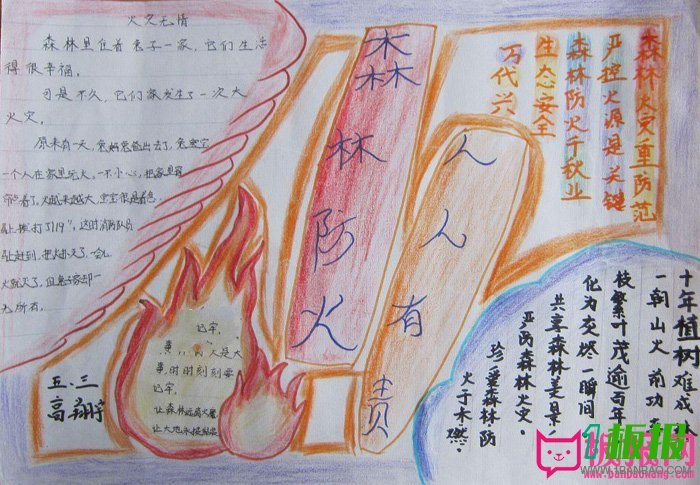 火灾无情
森林里住着兔子一家，它们生活
得很幸福。
可是不久，它们家发生了一次大
火灾。
原来有一天，兔妈兔爸出去了，兔宝宝
一个人在家里玩火。一不小心，把家里窗
着了。火越来越大，宝宝很是着急。
打了119，这时消防队员
赶到，把火扑灭了。一
火就灭了，但兔子家却一
无所有。
森林防火
人人有责
森林火灾重防范
严控火源是关键
森林防火千秋业
生态安全
万代兴
十年植树难成
一朝山火前功
枝繁叶茂逾百年
化为灰烬一瞬间
共享森林美景
严防森林火灾。
珍重森林防
火于未燃。
记牢，
火是大
事，时时刻刻要
记牢，
让森林远离火魔
让大地
五.三
高翔宇
板报
WWW.1BANBAO.COM
板报网
www.banbaowang.com